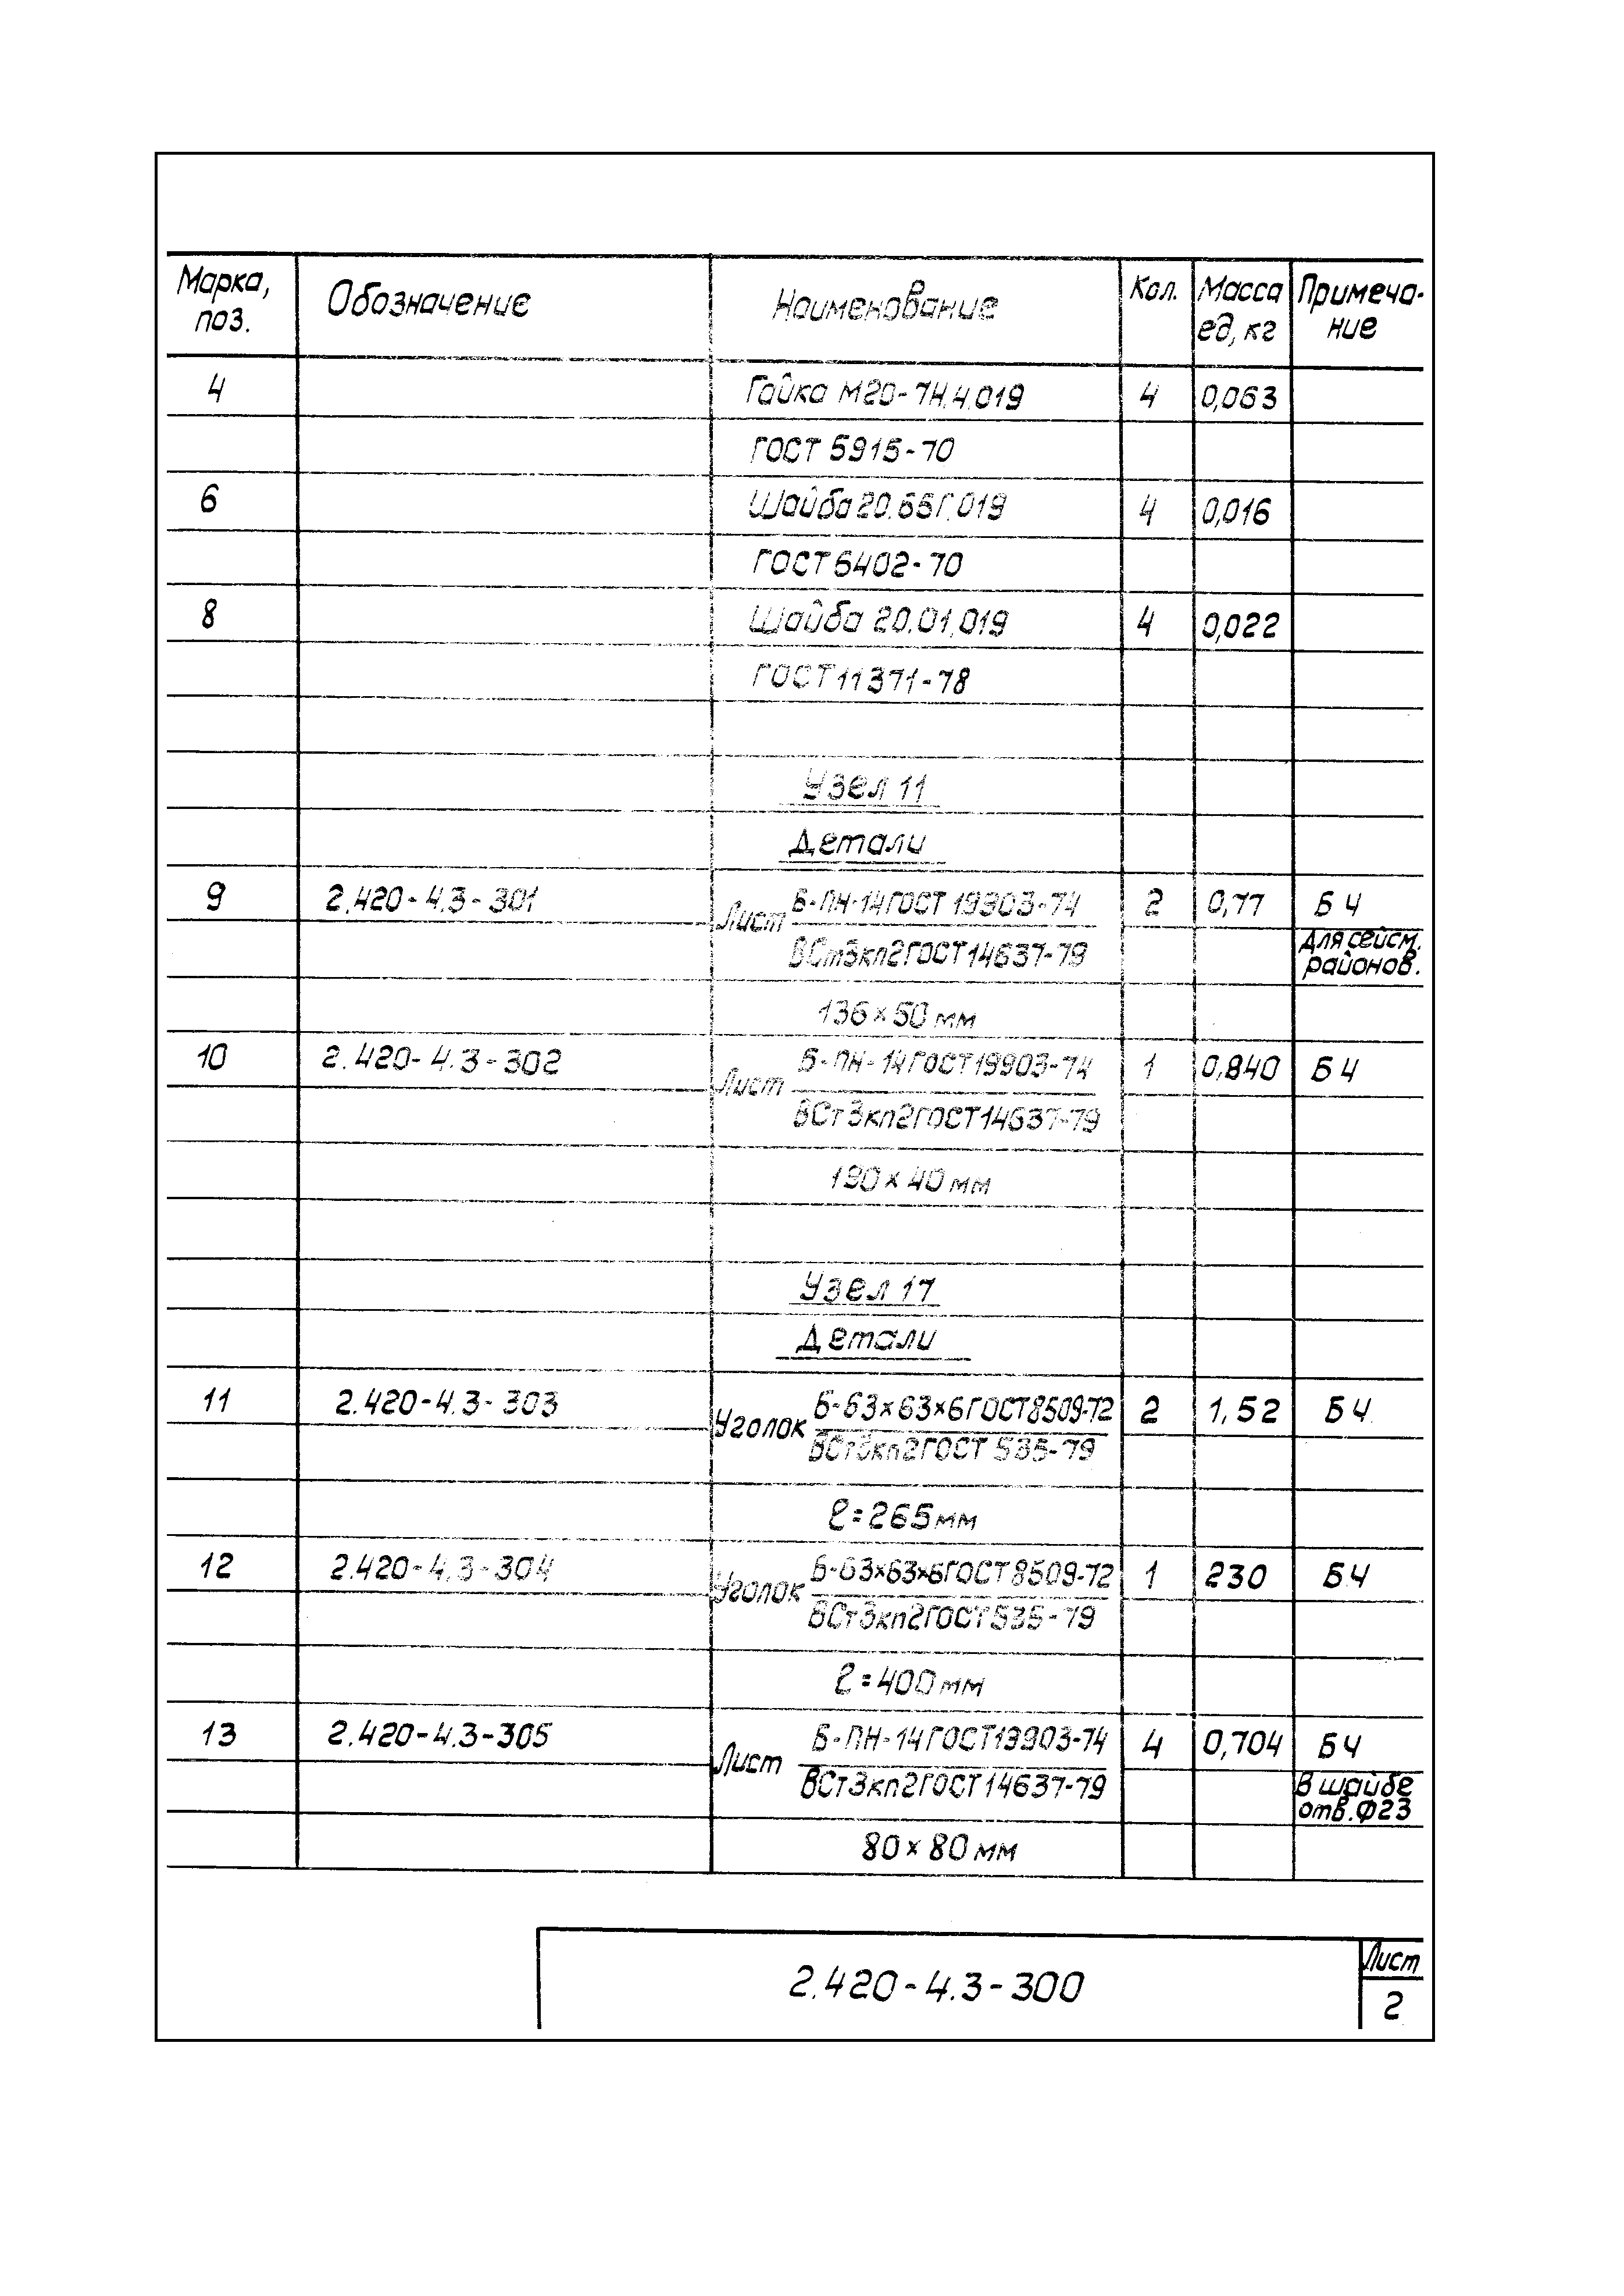 Марка, поз. Обозначение Наименование Кол. Масса ед, кг Примеча-ние
4 Гайка М20-7Н.4.019 4 0,063
ГОСТ 5915-70
6 Шайба 20.65Г.019 4 0,016
ГОСТ 6402-70
8 Шайба 20.01.019 4 0,022
ГОСТ 11371-78
Узел 11
Детали
9 2.420-4.3-301 Лист Б-ПН-14 ГОСТ 19903-74 2 0,77 БЧ
ВСт3кп2 ГОСТ 14637-79 Для сейсм. районов.
136×50 мм
10 2.420-4.3-302 Лист Б-ПН-14 ГОСТ 19903-74 1 0,840 БЧ
ВСт3кп2 ГОСТ 14637-79
190×40 мм
Узел 17
Детали
11 2.420-4.3-303 Уголок Б-63×63×6 ГОСТ 8509-72 2 1,52 БЧ
ВСт3кп2 ГОСТ 535-79
ℓ=265 мм
12 2.420-4.3-304 Уголок Б-63×63×6 ГОСТ 8509-72 1 230 БЧ
ВСт3кп2 ГОСТ 535-79
ℓ=400 мм
13 2.420-4.3-305 Лист Б-ПН-14 ГОСТ 19903-74 4 0,704 БЧ
ВСт3кп2 ГОСТ 14637-79 В шайбе отв. Ф23
80×80 мм
2.420-4.3-300 Лист
2